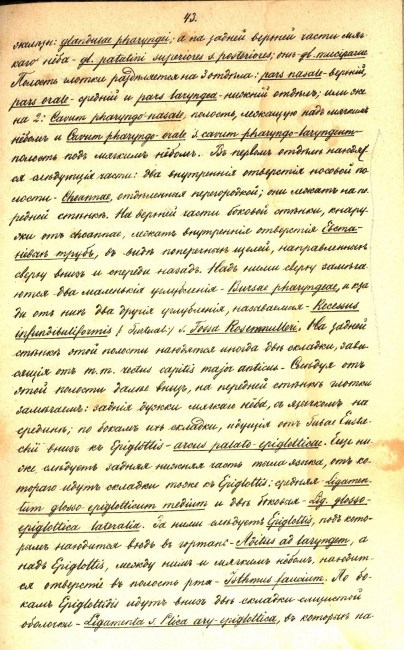 43.
железы: glandulae pharyngei; а на задней верхней части мяг-
каго нёба - gl. palatini superiores s. posteriores; они gl. muciparae
Полость глотки раздѣляется на 3 отдѣла: pars nasale - верхній,
pars orale - средній и pars laryngea - нижній отдѣлъ; или же
на 2: Cavum pharyngo-nasale, полость, лежащую надъ мягкимъ
нёбомъ и Cavum pharyngo-orale s. cavum pharyngo-laryngeum -
полость подъ мягкимъ нёбомъ. Въ первомъ отдѣлѣ находят-
ся слѣдующія части: два внутреннія отверстія носовой по-
лости - Choannae, отдѣленныя перегородкой; они лежатъ на пе-
редней стѣнкѣ. На верхней части боковой стѣнки, кнару-
жи отъ choannae, лежатъ внутреннія отверстія Евста-
хіевыхъ трубъ, въ видѣ поперечныхъ щелей, направленныхъ
сверху внизъ и спереди назадъ. Надъ ними сверху замѣча-
ются два маленькія углубленія - Bursae pharyngeae, и сза-
ди отъ нихъ два другія углубленія, называемыя - Recessus
infundibuliformis s. Fossa Rosenmulleri. На задней
стѣнкѣ этой полости находятся иногда двѣ складки, зави-
сящія отъ m.m. rectus capitis major anticus. Слѣдуя отъ
этой полости далѣе внизъ, на передней стѣнкѣ глотки
замѣчаемъ: заднія дужки мягкаго нёба, съ язычкомъ на
срединѣ; по бокамъ ихъ складки, идущія отъ tubae Eusta-
chii внизъ къ Epiglottis - arcus palato-epiglotticae. Еще ни-
же слѣдуетъ задняя нижняя часть тѣла языка, отъ ко-
тораго идутъ складки тоже къ Epiglottis: средняя - Ligamen-
tum glosso-epiglotticum medium и двѣ боковыя - Lig. glosso-
epiglottica lateralia. За ними слѣдуетъ Epiglottis, подъ кото-
рымъ находится входъ въ гортань - Aditus ad laryngem, а
надъ Epiglottis, между нимъ и мягкимъ нёбомъ, находит-
ся отверстіе въ полость рта - Isthmus faucium. По бо-
камъ Epiglottidis идутъ внизъ двѣ складки слизистой
оболочки - Ligamenta s. Plica ary-epiglottica, въ которыхъ на